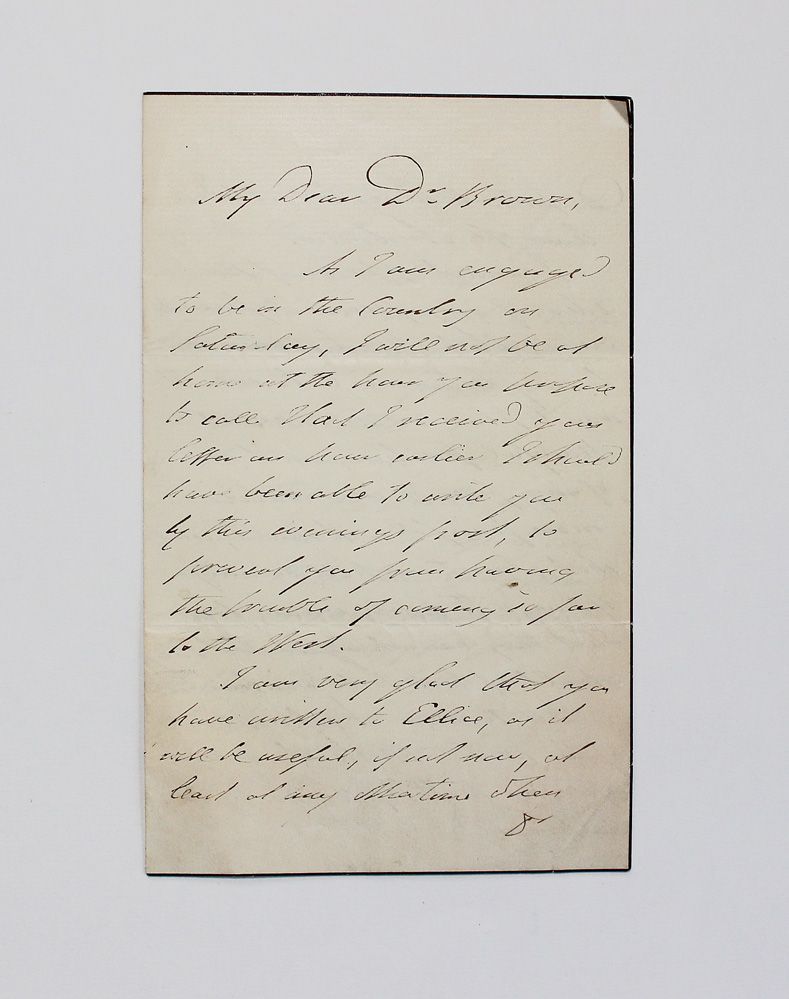 My Dear Dr Brown,
As I am engaged
to be in the Country on
Saturday, I will not be at
home at the hour you propose
to call. Had I received your
letter an hour earlier I should
have been able to write you
by this evenings post, to
prevent you from having
the trouble of coming so far
to the West.
I am very glad that you
have written to Ellice, as it
will be useful, if not now, at
least at any other time when